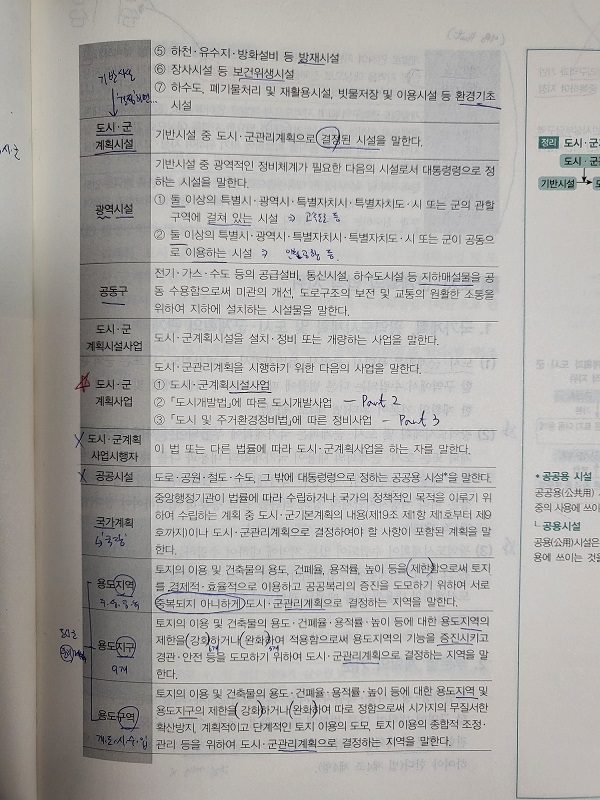 ⑤ 하천·유수지·방화설비 등 방재시설
⑥ 장사시설 등 보건위생시설
⑦ 하수도, 폐기물처리 및 재활용시설, 빗물저장 및 이용시설 등 환경기초
시설
기반시설
도시·군
계획시설
기반시설 중 도시·군관리계획으로 결정된 시설을 말한다.
광역시설
기반시설 중 광역적인 정비체계가 필요한 다음의 시설로서 대통령령으로 정
하는 시설을 말한다.
① 둘 이상의 특별시·광역시·특별자치시·특별자치도·시 또는 군의 관할
구역에 걸쳐 있는 시설 ⇒ 고속도로 등
② 둘 이상의 특별시·광역시·특별자치시·특별자치도·시 또는 군이 공동으
로 이용하는 시설
공동구
전기·가스·수도 등의 공급설비, 통신시설, 하수도시설 등 지하매설물을 공
동 수용함으로써 미관의 개선, 도로구조의 보전 및 교통의 원활한 소통을
위하여 지하에 설치하는 시설물을 말한다.
도시·군
계획시설사업
도시·군계획시설을 설치·정비 또는 개량하는 사업을 말한다.
도시·군
계획사업
도시·군관리계획을 시행하기 위한 다음의 사업을 말한다.
① 도시·군계획시설사업
② 「도시개발법」에 따른 도시개발사업 — Part 2
③ 「도시 및 주거환경정비법」에 따른 정비사업 — Part 3
도시·군계획
사업시행자
이 법 또는 다른 법률에 따라 도시·군계획사업을 하는 자를 말한다.
공공시설
도로·공원·철도·수도, 그 밖에 대통령령으로 정하는 공공용 시설*을 말한다.
국가계획
중앙행정기관이 법률에 따라 수립하거나 국가의 정책적인 목적을 이루기 위
하여 수립하는 계획 중 도시·군기본계획의 내용(제19조 제1항 제1호부터 제9
호까지)이나 도시·군관리계획으로 결정하여야 할 사항이 포함된 계획을 말
한다.
용도지역
토지의 이용 및 건축물의 용도, 건폐율, 용적률, 높이 등을 제한함으로써 토지
를 경제적·효율적으로 이용하고 공공복리의 증진을 도모하기 위하여 서로
중복되지 아니하게 도시·군관리계획으로 결정하는 지역을 말한다.
용도지구
9개
토지의 이용 및 건축물의 용도·건폐율·용적률·높이 등에 대한 용도지역의
제한을 강화하거나 완화하여 적용함으로써 용도지역의 기능을 증진시키고
경관·안전 등을 도모하기 위하여 도시·군관리계획으로 결정하는 지역을 말
한다.
용도구역
개·도·시·수·입
토지의 이용 및 건축물의 용도·건폐율·용적률·높이 등에 대한 용도지역 및
용도지구의 제한을 강화하거나 완화하여 따로 정함으로써 시가지의 무질서한
확산방지, 계획적이고 단계적인 토지 이용의 도모, 토지 이용의 종합적 조정·
관리 등을 위하여 도시·군관리계획으로 결정하는 지역을 말한다.
정리 도시·군
도시·군
기반시설
• 공공용 시설
공공용(公共用)
중의 사용에 쓰이
공용시설
공용(公用)시설은
용에 쓰이는 것을